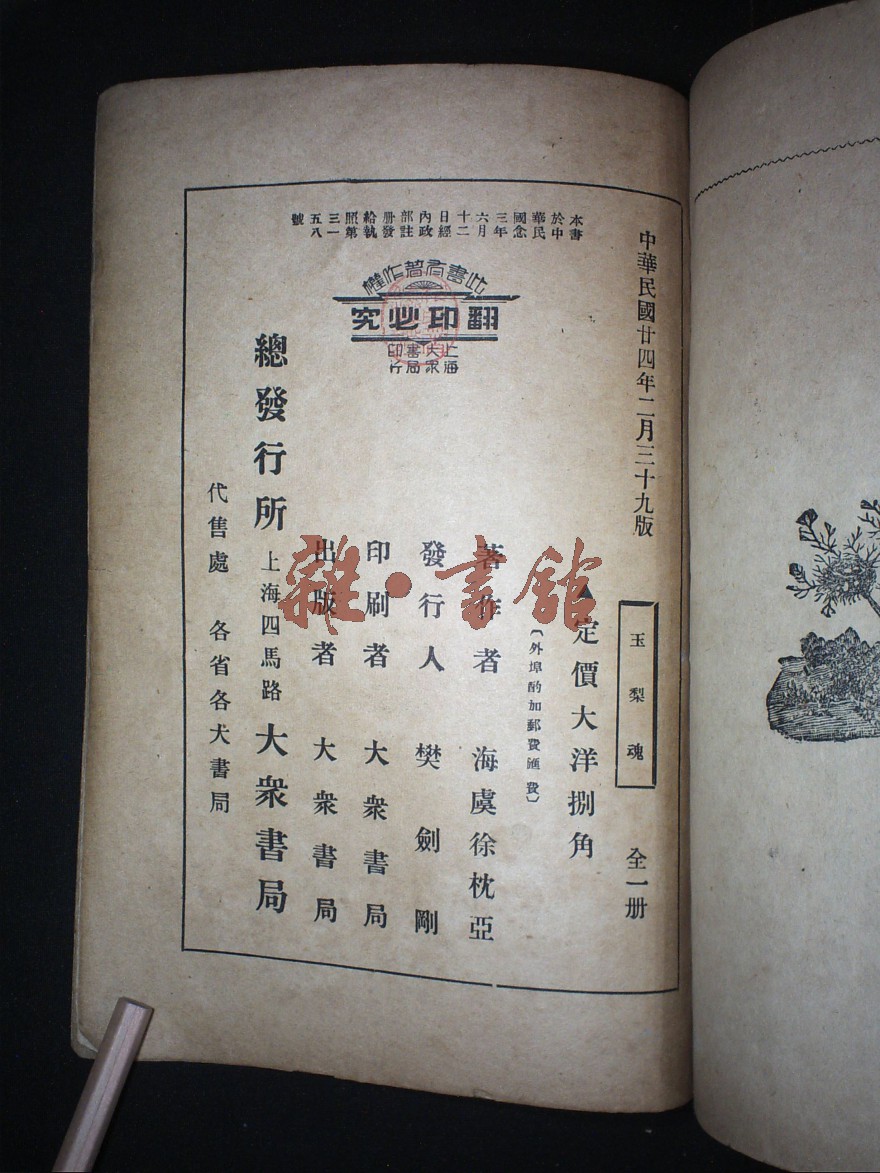 中華民國廿四年二月三十九版
玉梨魂
全一册
▲定價大洋捌角
〔外埠酌加郵費滙費〕
著作者 海虞徐枕亞
發行人 樊劍剛
印刷者 大衆書局
出版者 大衆書局
總發行所 上海四馬路 大衆書局
代售處 各省各大書局
本書於中華民國念三年六月十二日經內政部註册發給執照第三一五八號
此書有著作權
翻印必究
上海大眾書局印行
雜·書館